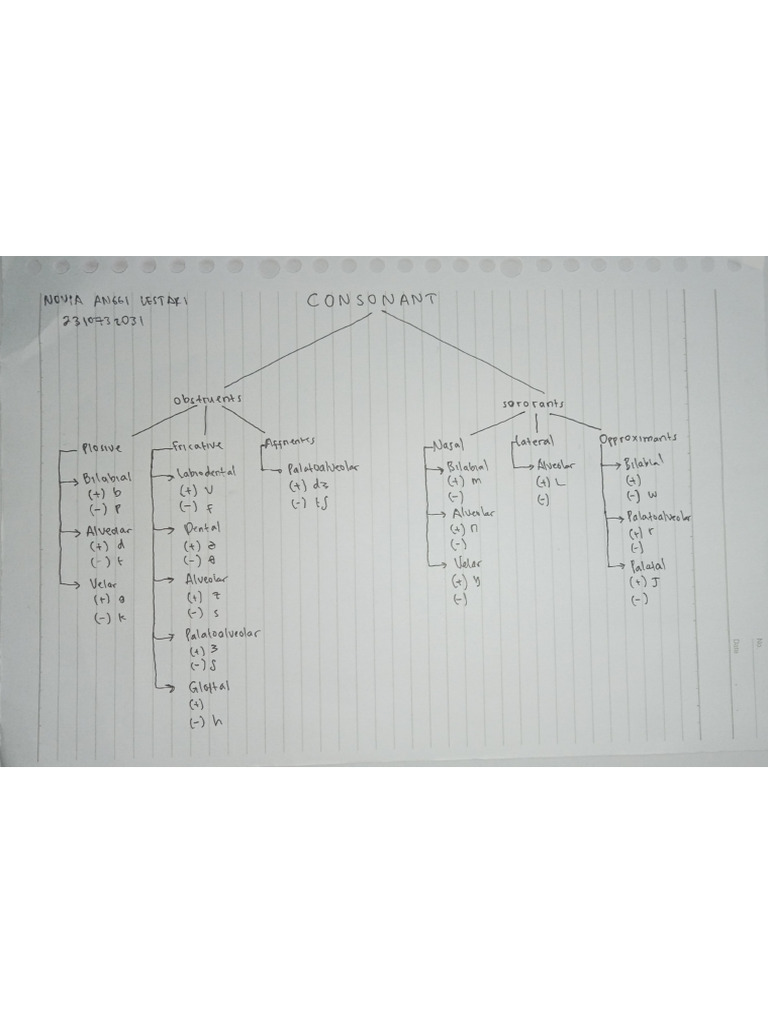 NOVIA ANGGI LESTARI
2310732031
CONSONANT
obstruents
Plosive
Bilabial
(+) b
(-) p
Alveolar
(+) d
(-) t
Velar
(+) g
(-) k
Fricative
Labiodental
(+) v
(-) f
Dental
(+) ə
(-) θ
Alveolar
(+) z
(-) s
Palatoalveolar
(+) ʒ
(-) ʃ
Glottal
(+)
(-) h
Affrients
Palatoalveolar
(+) dʒ
(-) tʃ
sororants
Nasal
Bilabial
(+) m
(-)
Alveolar
(+) n
(-)
Velar
(+) y
(-)
Lateral
Alveolar
(+) L
(-)
Opproximants
Bilabial
(+)
(-) w
Palatoalveolar
(+) r
(-)
Palatal
(+) J
(-)
No.
Date